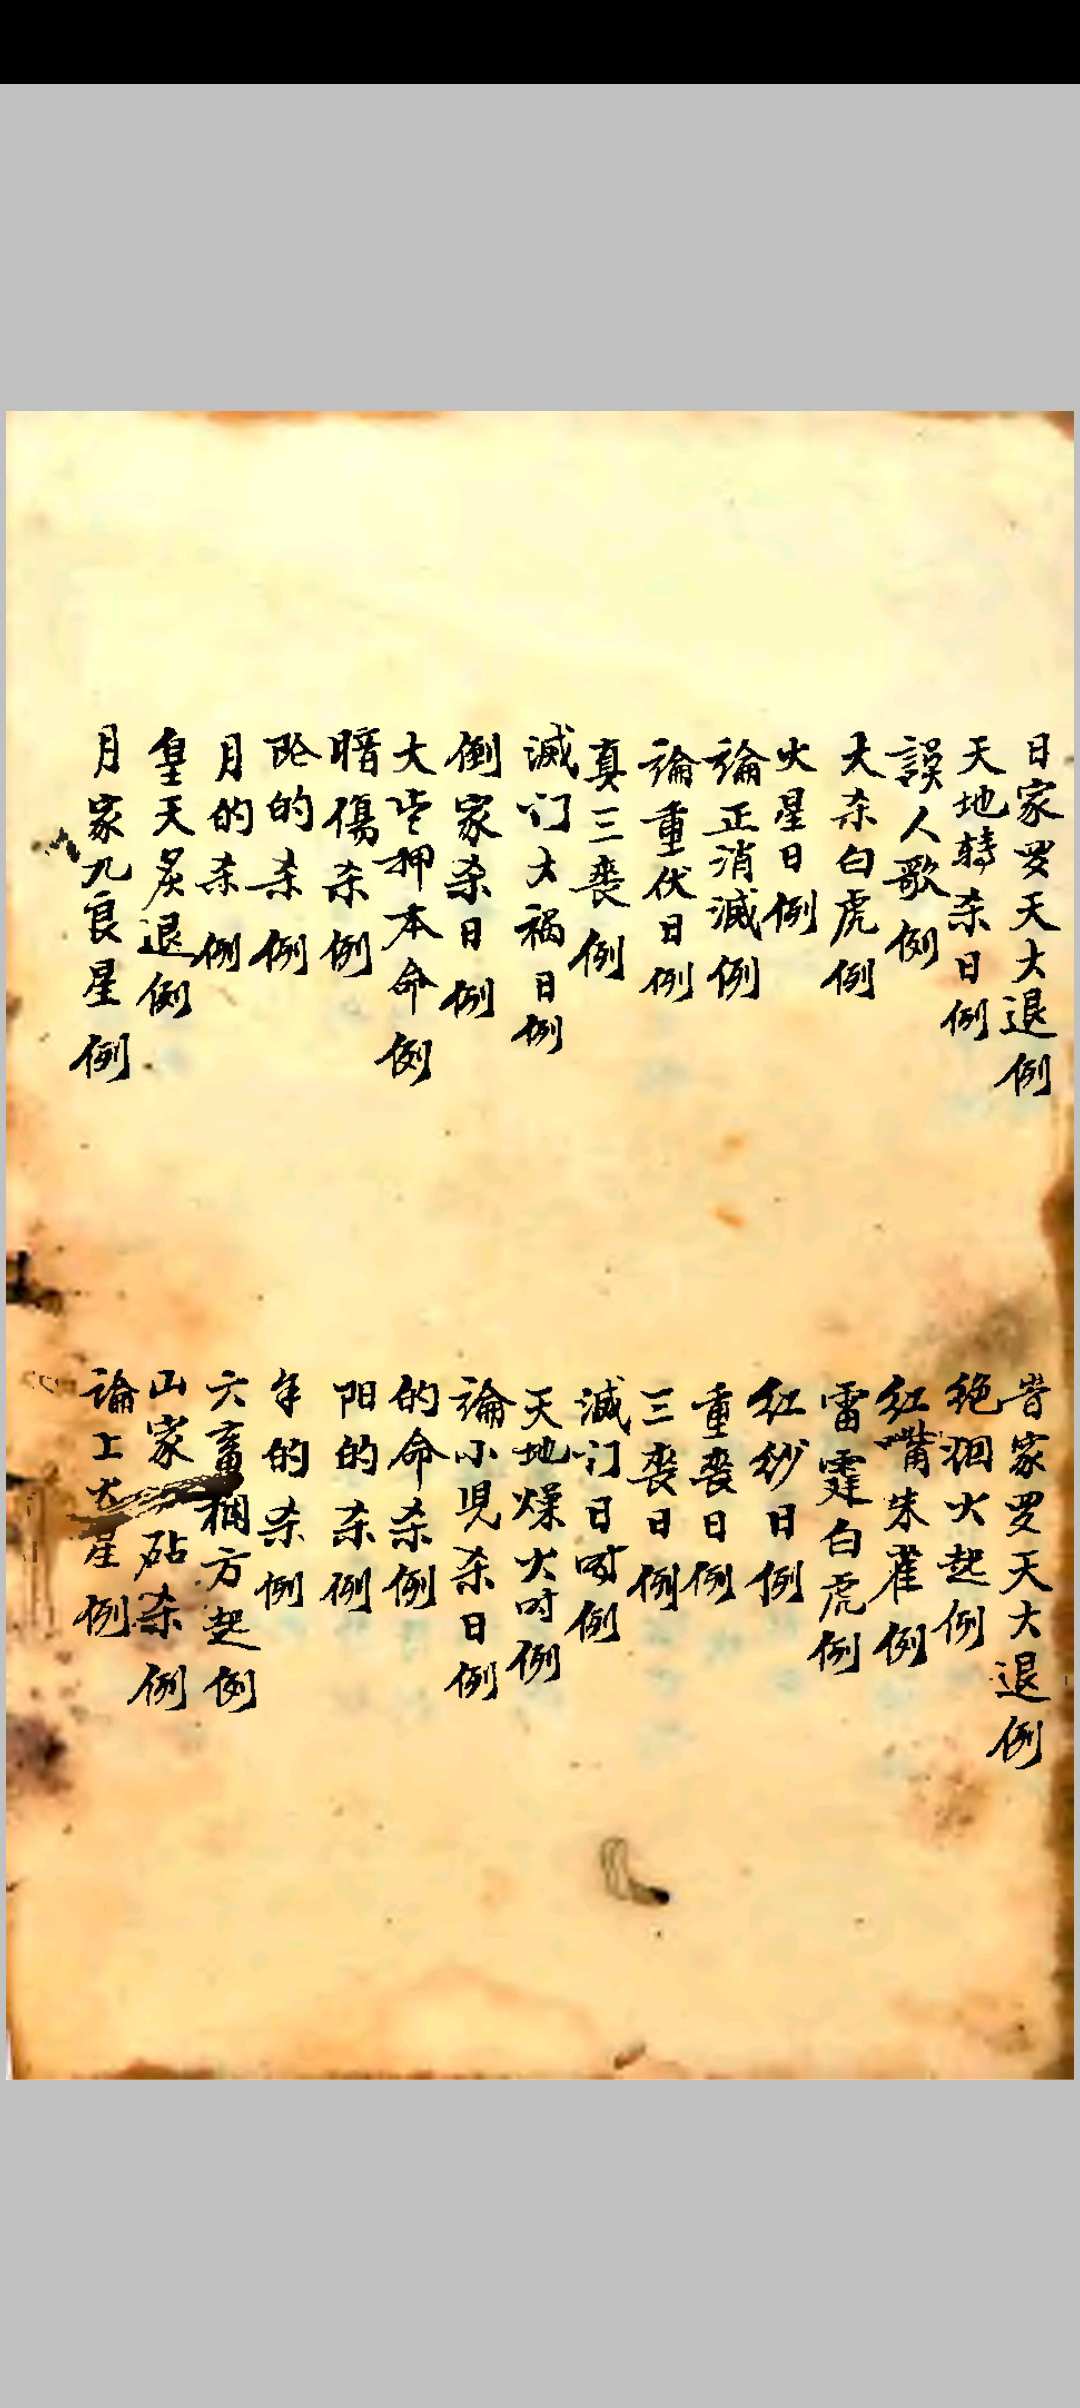 日家罗天大退例
天地轉杀日例
誤人歌例
大杀白虎例
火星日例
論正消滅例
論重伏日例
真三喪例
滅门大禍日例
倒家杀日例
大岁押本命例
暗傷杀例
阴的杀例
月的杀例
皇天炙退例
月家九良星例
家罗天大退例
絶洄火起例
红嘴朱雀例
雷霆白虎例
红紗日例
重喪日例
三喪日例
滅门日时例
天地燥火时例
論小児杀日例
的命杀例
阳的杀例
年的杀例
六畜欄方起例
山家砧杀例
論上星例